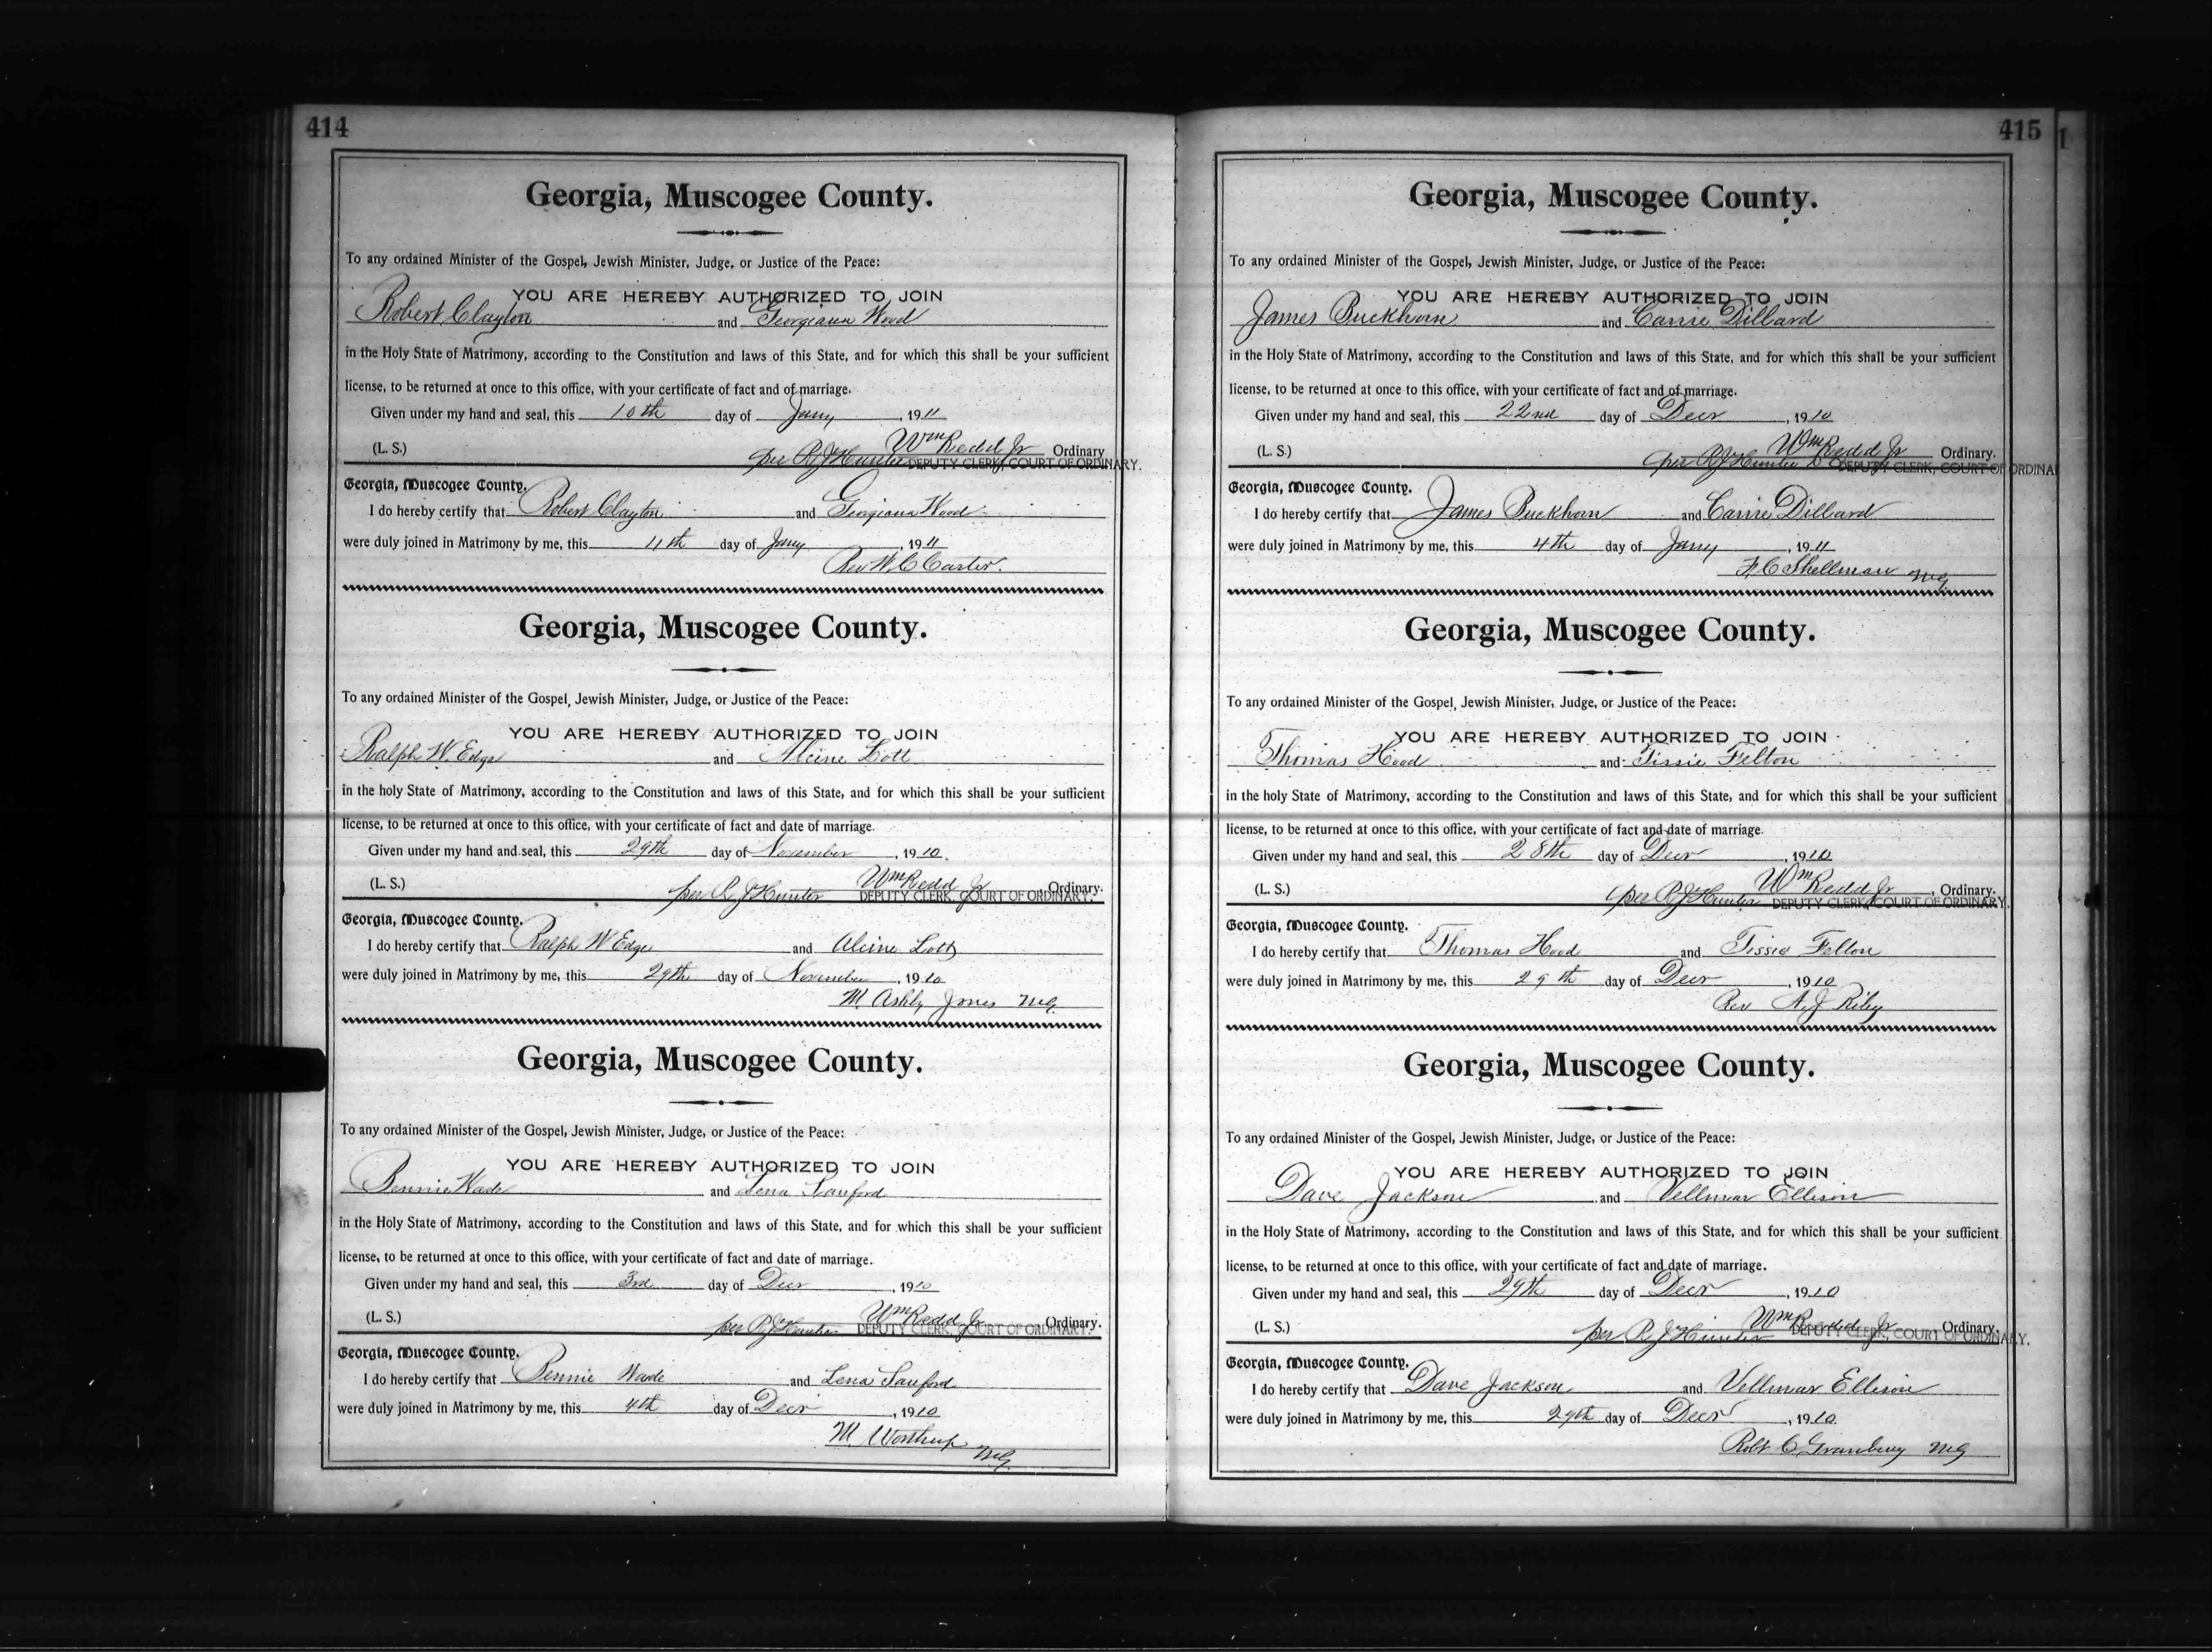 414
Georgia, Muscogee County.
To any ordained Minister of the Gospel, Jewish Minister, Judge, or Justice of the Peace:
YOU ARE HEREBY AUTHORIZED TO JOIN
Robert Clayton and Georgiann Wood
in the Holy State of Matrimony, according to the Constitution and laws of this State, and for which this shall be your sufficient
license, to be returned at once to this office, with your certificate of fact and of marriage.
Given under my hand and seal, this 10th day of Jany, 1911
(L. S.) Wm Redd Jr Ordinary
per R J Hunter DEPUTY CLERK, COURT OF ORDINARY.
Georgia, Muscogee County.
I do hereby certify that Robert Clayton and Georgiana Wood
were duly joined in Matrimony by me, this 11th day of Jany, 1911
Rev W. C Carter.
Georgia, Muscogee County.
To any ordained Minister of the Gospel, Jewish Minister, Judge, or Justice of the Peace:
YOU ARE HEREBY AUTHORIZED TO JOIN
Ralph W. Edge and Aleine Lott
in the holy State of Matrimony, according to the Constitution and laws of this State, and for which this shall be your sufficient
license, to be returned at once to this office, with your certificate of fact and date of marriage.
Given under my hand and seal, this 29th day of November, 1910.
(L. S.) Wm Redd Jr, Ordinary.
per R J Hunter DEPUTY CLERK, COURT OF ORDINARY.
Georgia, Muscogee County.
I do hereby certify that Ralph W Edge and Aleine Lott
were duly joined in Matrimony by me, this 29th day of November, 1910
M. Ashby Jones MG.
Georgia, Muscogee County.
To any ordained Minister of the Gospel, Jewish Minister, Judge, or Justice of the Peace:
YOU ARE HEREBY AUTHORIZED TO JOIN
Bennie Wade and Lena Sanford
in the Holy State of Matrimony, according to the Constitution and laws of this State, and for which this shall be your sufficient
license, to be returned at once to this office, with your certificate of fact and date of marriage.
Given under my hand and seal, this 3rd day of Decr, 1910
(L. S.) Wm Redd Jr Ordinary.
per R J Hunter DEPUTY CLERK, COURT OF ORDINARY.
Georgia, Muscogee County.
I do hereby certify that Bennie Wade and Lena Sanford
were duly joined in Matrimony by me, this 4th day of Decr, 1910
M. MG.
415
Georgia, Muscogee County.
To any ordained Minister of the Gospel, Jewish Minister, Judge, or Justice of the Peace:
YOU ARE HEREBY AUTHORIZED TO JOIN
James Buckhorn and Carrie Dillard
in the Holy State of Matrimony, according to the Constitution and laws of this State, and for which this shall be your sufficient
license, to be returned at once to this office, with your certificate of fact and of marriage.
Given under my hand and seal, this 22nd day of Decr, 1910
(L. S.) Wm Redd Jr Ordinary.
per R J Hunter DEPUTY CLERK, COURT OF ORDINA
Georgia, Muscogee County.
I do hereby certify that James Buckhorn and Carrie Dillard
were duly joined in Matrimony by me, this 4th day of Jany, 1911
F. C Shellman MG
Georgia, Muscogee County.
To any ordained Minister of the Gospel, Jewish Minister, Judge, or Justice of the Peace:
YOU ARE HEREBY AUTHORIZED TO JOIN
Thomas Hood and Tissie Felton
in the holy State of Matrimony, according to the Constitution and laws of this State, and for which this shall be your sufficient
license, to be returned at once to this office, with your certificate of fact and date of marriage.
Given under my hand and seal, this 28th day of Decr, 1910
(L. S.) Wm Redd Jr, Ordinary.
per R J Hunter DEPUTY CLERK, COURT OF ORDINARY.
Georgia, Muscogee County.
I do hereby certify that Thomas Hood and Tissie Felton
were duly joined in Matrimony by me, this 29th day of Decr, 1910
Rev A. J Riley
Georgia, Muscogee County.
To any ordained Minister of the Gospel, Jewish Minister, Judge, or Justice of the Peace:
YOU ARE HEREBY AUTHORIZED TO JOIN
Dave Jackson and Vellmar Ellison
in the Holy State of Matrimony, according to the Constitution and laws of this State, and for which this shall be your sufficient
license, to be returned at once to this office, with your certificate of fact and date of marriage.
Given under my hand and seal, this 29th day of Decr, 1910
(L. S.) Wm Redd Jr, Ordinary.
per R J Hunter DEPUTY CLERK, COURT OF ORDINARY.
Georgia, Muscogee County.
I do hereby certify that Dave Jackson and Vellmar Ellison
were duly joined in Matrimony by me, this 29th day of Decr, 1910.
Robt C. Granberry MG